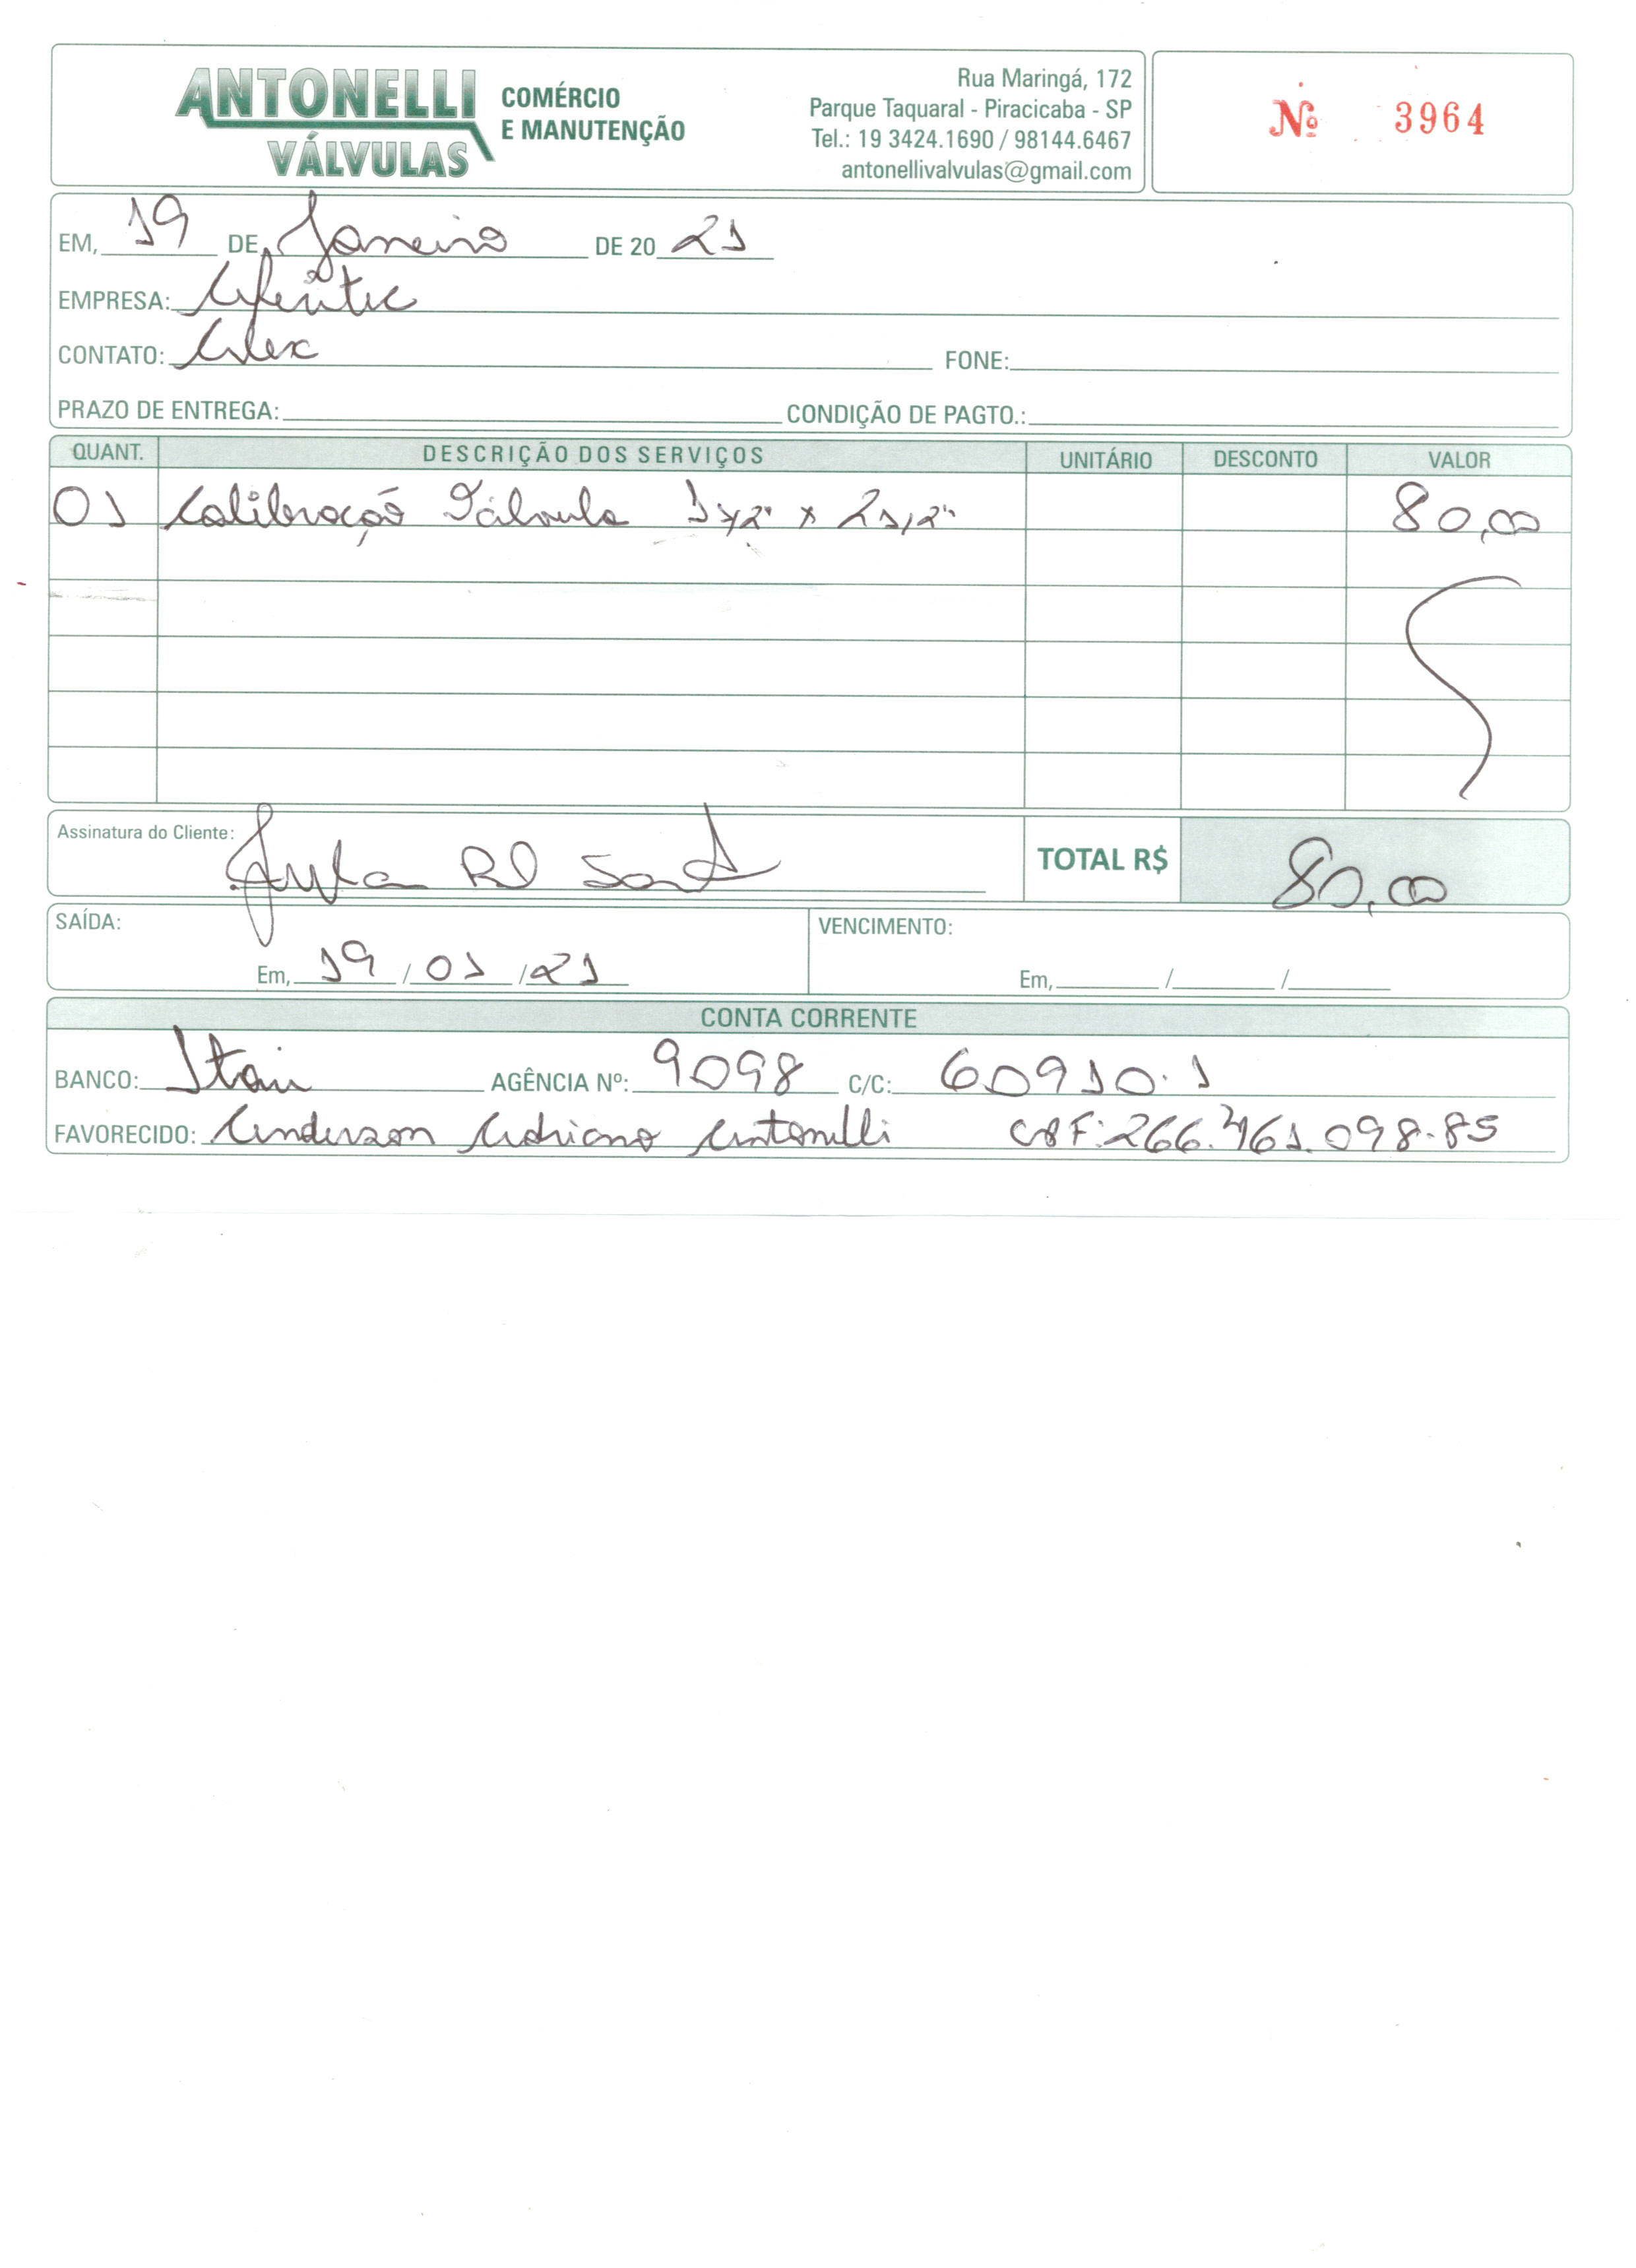 ANTONELLI VÁLVULAS
COMÉRCIO E MANUTENÇÃO
Rua Maringá, 172
Parque Taquaral - Piracicaba - SP
Tel.: 19 3424.1690 / 98144.6467
antonellivalvulas@gmail.com
Nº 3964
EM, 19 DE Janeiro DE 20 21
EMPRESA:
CONTATO: Alex FONE:
PRAZO DE ENTREGA: CONDIÇÃO DE PAGTO.:
QUANT. DESCRIÇÃO DOS SERVIÇOS UNITÁRIO DESCONTO VALOR
01 Calibração Válvula 1 1/2" x 2 1/2" 80,00
Assinatura do Cliente: TOTAL R$ 80,00
SAÍDA: VENCIMENTO:
Em, 19 / 01 / 21 Em, / /
CONTA CORRENTE
BANCO: Itau AGÊNCIA Nº: 9098 C/C: 60910.1
FAVORECIDO: Anderson Adriano Antonelli CPF: 266.461.098-85